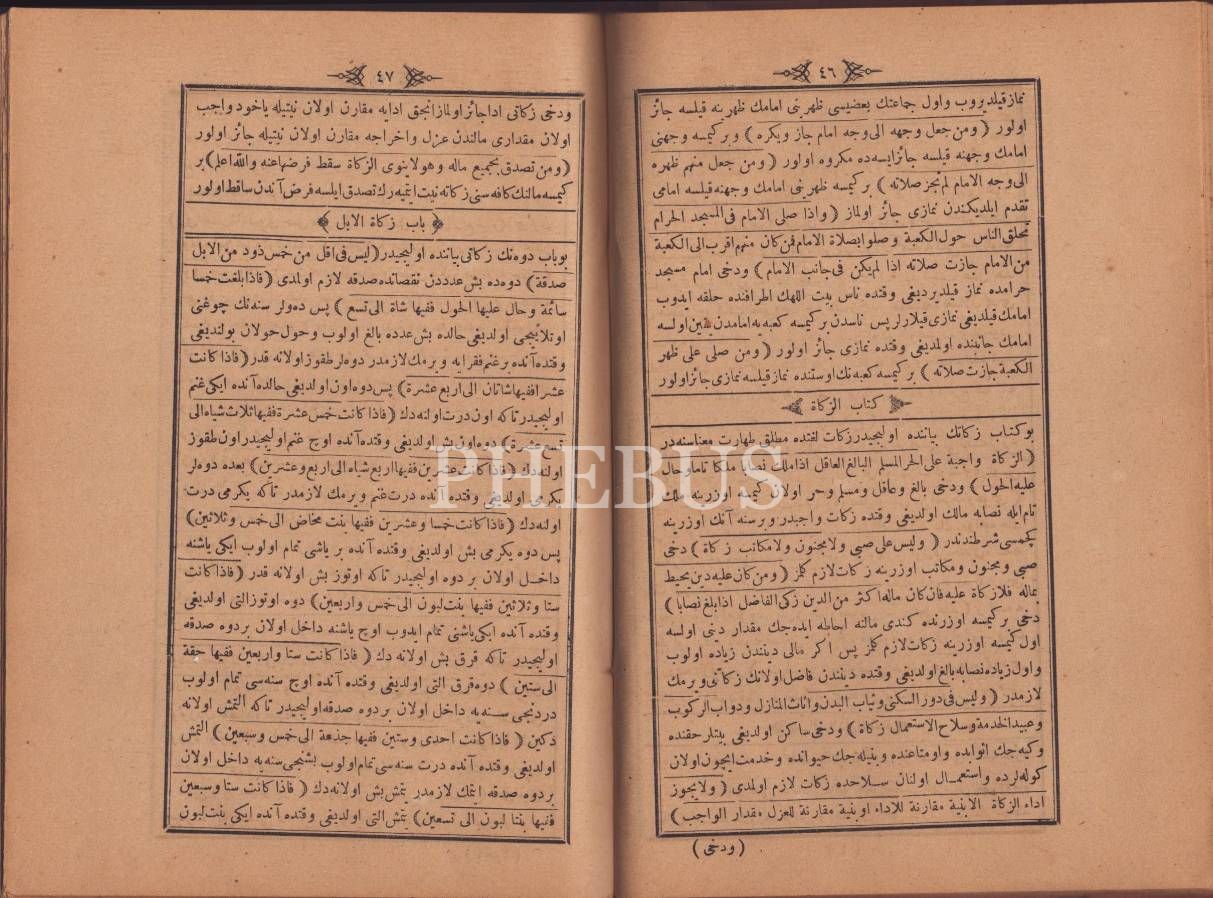 ٤٦
نماز قيلديروب واول جماعتك بعضيسى ظهرينى امامك ظهرينه قيلسه جائز
اولور (ومن جعل وجهه الى وجه امام جاز ويكره) وبركيمسه وجهنى
امامك وجهنه قيلسه جائز ايسه ده مكروه اولور (ومن جعل منهم ظهره
الى وجه الامام لم يجز صلاته) بر كيمسه ظهرينى امامك وجهنه قيلسه امامى
تقدم ايلديكندن نمازى جائز اولماز (واذا صلى الامام فى المسجد الحرام
تحلق الناس حول الكعبة وصلوا بصلاة الامام فمن كان منهم اقرب الى الكعبة
من الامام جازت صلاته اذا لم يكن فى جانب الامام) ودخى امام مسجد
حرامده نماز قيلديرديغى وقتده ناس بيت اللهك اطرافنده حلقه ايدوب
امامك قيلديغى نمازى قيلارلر پس ناسدن بر كيمسه كعبه يه امامدن يقين اولسه
امامك جانبنده اولمديغى وقتده نمازى جائز اولور (ومن صلى على ظهر
الكعبة جازت صلاته) بر كيمسه كعبه نك اوستنده نماز قيلسه نمازى جائز اولور
كتاب الزكاة
بو كتاب زكاتك بياننده اوليجيدر زكات لغتده مطلق طهارت معناسنه در
(الزكاة واجبة على الحر المسلم البالغ العاقل اذا ملك نصابا ملكا تاما وحال
عليه الحول) ودخى بالغ وعاقل ومسلم وحر اولان كيمسه اوزرينه ملك
تام ايله نصابه مالك اولديغى وقتده زكات واجبدر وبر سنه آنك اوزرينه
كچمسى شرطندندر (وليس على صبى ولا مجنون ولا مكاتب زكاة) دخى
صبى ومجنون ومكاتب اوزرينه زكات لازم كلمز (ومن كان عليه دين يحيط
بماله فلا زكاة عليه فان كان ماله اكثر من الدين زكى الفاضل اذا بلغ نصابا)
دخى بر كيمسه اوزرنده كندى مالنه احاطه ايده جك مقدار دينى اولسه
اول كيمسه اوزرينه زكات لازم كلمز پس اكر مالى ديننـدن زياده اولوب
واول زياده نصابه بالغ اولديغى وقتده ديننـدن فاضل اولانك زكاتنى ويرمك
لازمدر (وليس فى دور السكنى وثياب البدن واثاث المنازل ودواب الركوب
وعبيد الخدمة وسلاح الاستعمال زكاة) ودخى ساكن اولديغى بيتلر حقنده
وكيه جك اثوابده واو متاعنده وبنيله جك حيوانده وخدمت ايچون اولان
كوله لرده واستعمال اولنان سلاحده زكات لازم اولمدى (ولا يجوز
اداء الزكاة الا بنية مقارنة للاداء او بنية مقارنة للعزل مقدار الواجب)
(ودخى)
٤٧
ودخى زكاتى ادا جائز اولماز انجق ادايه مقارن اولان نيتيله ياخود واجب
اولان مقدارى مالندن عزل واخراجه مقارن اولان نيتيله جائز اولور
(ومن تصدق بجميع ماله وهو لا ينوى الزكاة سقط فرضها عنه والله اعلم) بر
كيمسه مالنك كافه سنى زكاته نيت ايتميه رك تصدق ايلسه فرض آندن ساقط اولور
باب زكاة الابل
بو باب دوه نك زكاتى بياننده اوليجيدر (ليس فى اقل من خمس ذود من الابل
صدقة) دوه ده بش عددن نقصانده صدقه لازم اولمدى (فاذا بلغت خمسا
سائمة وحال عليها الحول ففيها شاة الى تسع) پس دوه لر سنه نك چوغنى
اوتلانيجى اولديغى حالده بش عدده بالغ اولوب وحول حولان بولنديغى
وقتده آنده بر غنم فقرايه ويرمك لازمدر دوه لر طقوز اولانه قدر (فاذا كانت
عشرا ففيها شاتان الى اربع عشرة) پس دوه اون اولديغى حالده آنده ايكى غنم
اوليجيدر تا كه اون درت اولنه دك (فاذا كانت خمس عشرة ففيها ثلاث شياه الى
تسع عشرة) دوه اون بش اولديغى وقتده آنده اوچ غنم اوليجيدر اون طقوز
اولنه دك (فاذا كانت عشرين ففيها اربع شياه الى اربع وعشرين) بعده دوه لر
يكرمى اولديغى وقتده آنده درت غنم ويرمك لازمدر تا كه يكرمى درت
اولنه دك (فاذا كانت خمسا وعشرين ففيها بنت مخاض الى خمس وثلاثين)
پس دوه يكرمى بش اولديغى وقتده آنده بر ياشى تمام اولوب ايكى ياشنه
داخل اولان بر دوه اوليجيدر تا كه اوتوز بش اولانه قدر (فاذا كانت
ستا وثلاثين ففيها بنت لبون الى خمس واربعين) دوه اوتوز التى اولديغى
وقتده آنده ايكى ياشنى تمام ايدوب اوچ ياشنه داخل اولان بر دوه صدقه
اوليجيدر تا كه قرق بش اولانه دك (فاذا كانت ستا واربعين ففيها حقة
الى ستين) دوه قرق التى اولديغى وقتده آنده اوچ سنه سى تمام اولوب
دردنجى سنه يه داخل اولان بر دوه صدقه اوليجيدر تا كه التمش اولانه
دكين (فاذا كانت احدى وستين ففيها جذعة الى خمس وسبعين) التمش
اولديغى وقتده آنده درت سنه سى تمام اولوب بشنجى سنه يه داخل اولان
بر دوه صدقه ايتمك لازمدر يتمش بش اولانه دك (فاذا كانت ستا وسبعين
ففيها بنتا لبون الى تسعين) يتمش التى اولديغى وقتده آنده ايكى بنت لبون
PHEBUS